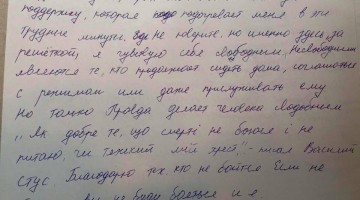 поддержку, которая подогревает меня в эти
трудные минуты. Не поверите, но именно здесь, за
решёткой, я чувствую себя свободным. Несвободными
являются те, кто продолжает сидеть дома, соглашаться
с режимом или даже прислуживать ему
Но только Правда делает человека свободным
„Як добре те, що смерті не боюсь і не
питаю, чи тяжкий мій хрест" – писал Василий
Стус. Благодарю тех, кто не боится. Если не
не буду бояться и я.